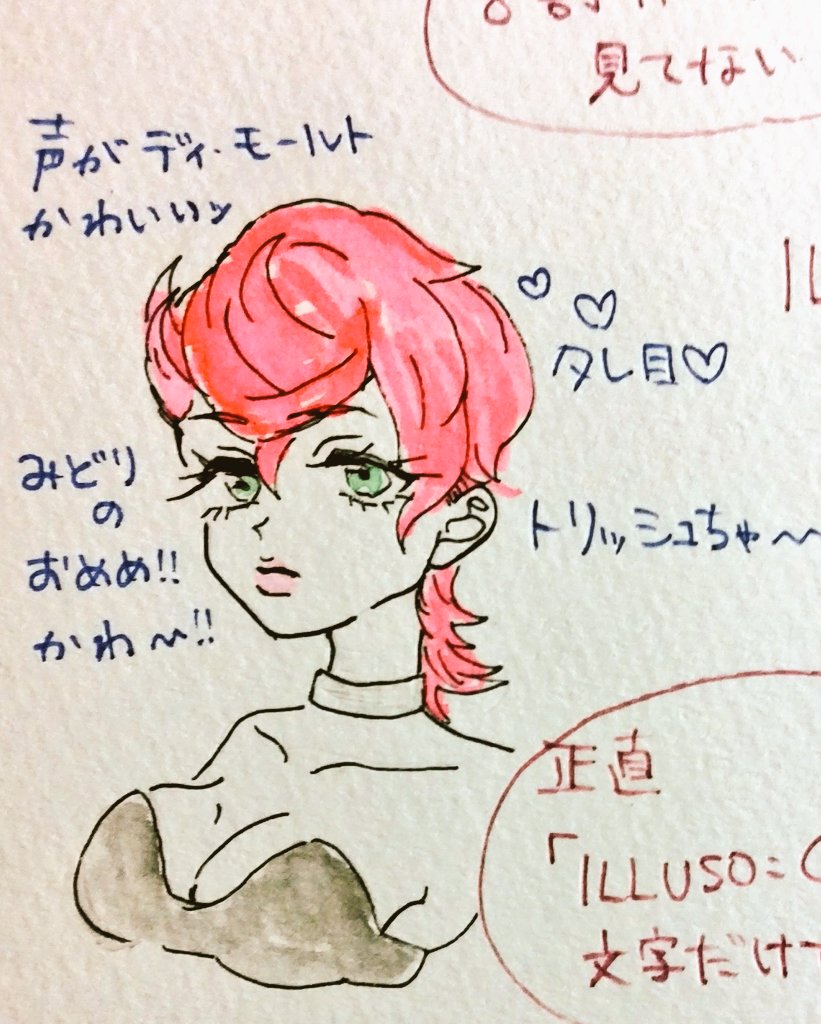 見てない
声がディ・モールト
かわいいッ
タレ目♡
みどり
の
おめめ!!
かわ〜!!
トリッシュちゃ〜
正直
「ILLUSO=
文字だけ